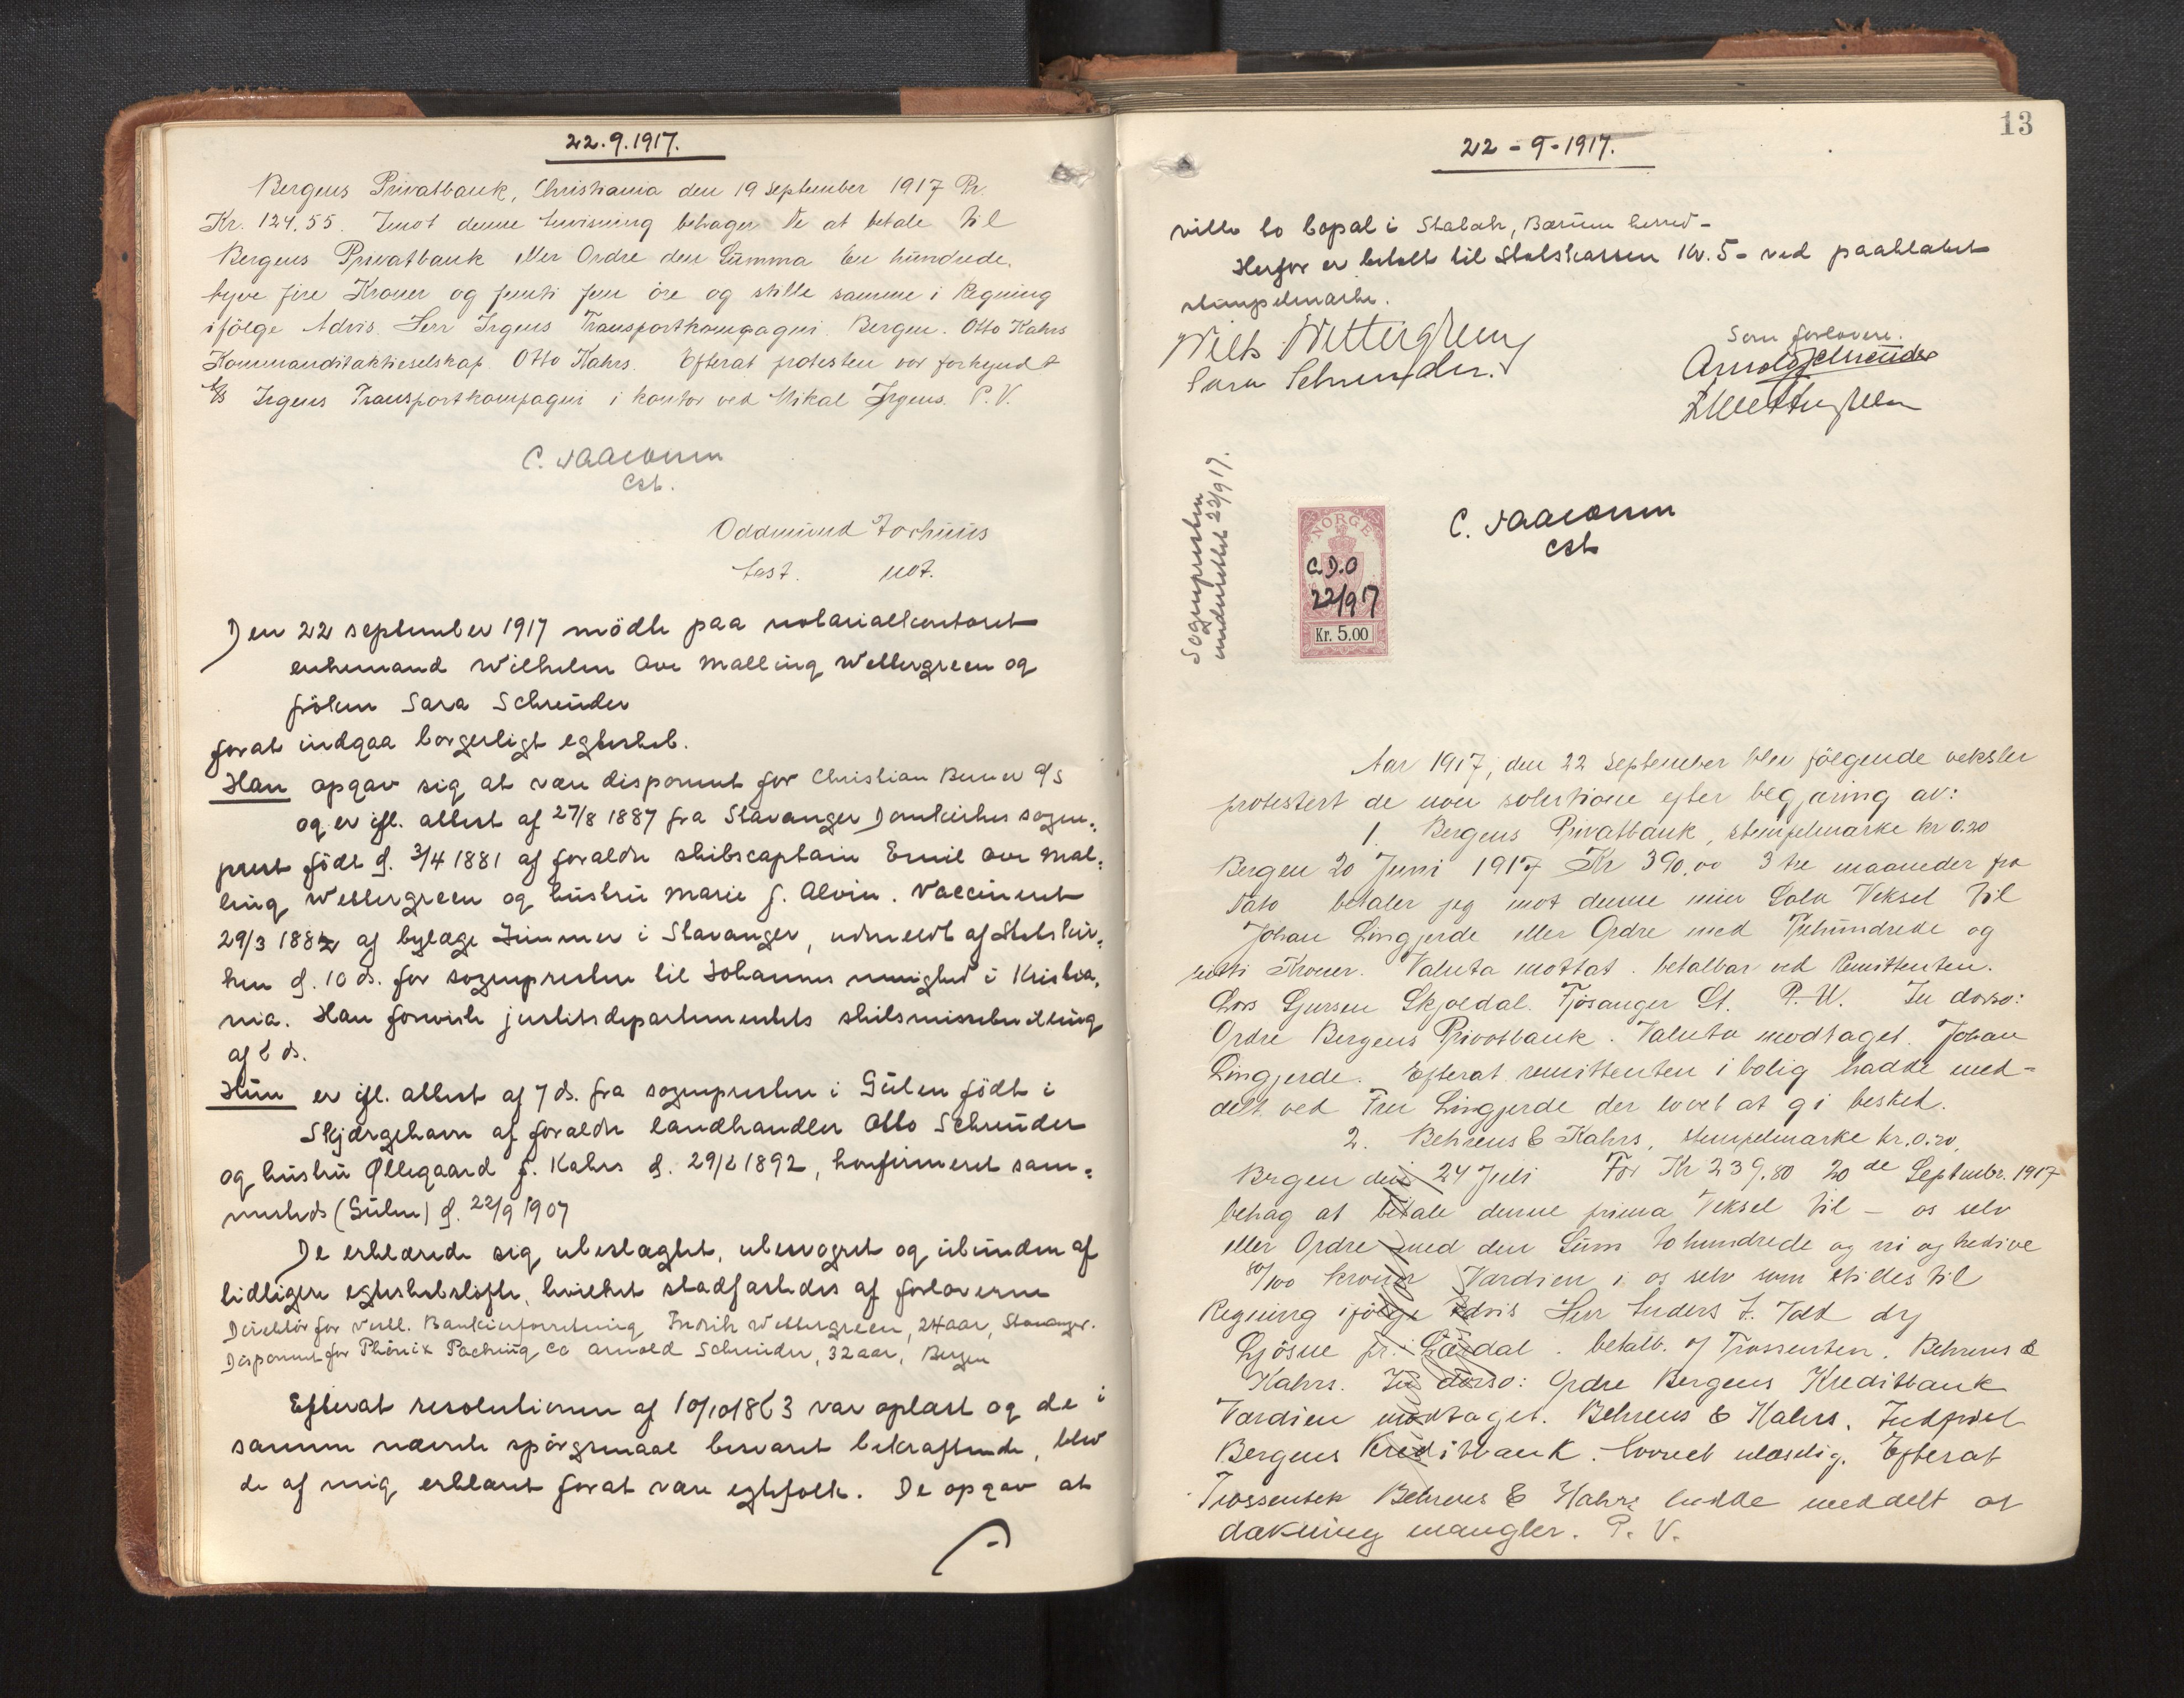 22.9.1917.
Bergens Privatbank, Christiania den 19 September 1917 Pr.
Kr. 124,55. Imot denne Anvisning behager De at betale til
Bergens Privatbank eller Ordre den Summa En hundrede
tyve fire Kroner og femti fem öre og stille samme i Regning
ifölge Advis. Herr Irgens Transportkompagni Bergen. Otto Kahrs
Kommanditaktieselskap Otto Kahrs. Efterat protesten var forkyndt
A/S Irgens Transportkompagni i kontor ved Mikal Irgens. P. V.
C. Isaacosen
cst.
Oddmund
not.
Den 22 september 1917 mödte paa notarialkontoret
enkemand Wilhelm Ove Malling Wettergreen og
fröken Sara Schreuder
forat indgaa borgerligt egteskab.
Han opgav sig at være disponent for Christian a/s
og er ifl. attest af 27/8 1887 fra Stavanger Domkirkes sogne-
prest födt d. 3/4 1881 af foræidre skibscaptain Emil Ove Mal-
ling Wettergreen og hustru Marie f. Alvin. Vaccineret
29/3 1882 af bylæge Zimmer i Stavanger, udmeldt af Statskir-
ken d. 10 ds. for sognepresten til Johannes menighed i Kristia-
nia. Han foreviste justitsdepartementets skilsmissebevilling
af 6 ds.
Hun er ifl. attest af 7 ds. fra sognepresten i Gulen födt i
Skjærgehavn af forældre landhandler Otto Schreuder
og hustru Øllegaard f. Kahrs d. 29/6 1892, konfirmeret sam-
mesteds (Gulen) d. 22/9 1907
De erklærede sig ubeslægtet, ubesvogret og ubunden af
tidligere egteskabslöfte, hvilket stadfæstedes af forloverne
Direktör for Vestl. Bankierforretning Fredrik Wettergreen, 24 aar, Stavanger.
Disponent for Phönix Packing Co Arnold Schreuder, 32 aar, Bergen
Efterat resolutionen af 10/10 1863 var oplæst og de i
samme nævnte spörgsmaal besvaret bekræftende, blev
de af mig erklæret forat være egtefolk. De opgav at
13
22-9-1917.
ville ta bopæl i Stabæk, Bærum herred -
Herfor er betalt til Statskassen Kr. 5- ved paaklæbet
stempelmærke.
Wilh Wettergreen
Sara Schreuder.
Som forlovere.
Arnold Schreuder
Sognepresten
underrettet 22/9 17.
NORGE
C.D.O
22/9 17
Kr. 5.00
C. Isaacosen
cst
Aar 1917, den 22 September blev fölgende veksler
protestert de non solutione efter begjæring av:
1. Bergens Privatbank, stempelmærke kr 0.20
Bergen 20 Juni 1917 Kr 390,00 3 tre maaneder fra
Dato betaler jeg mot denne min Sola Veksel til
Johan Lingjerde eller Ordre med Trehundrede og
nitti Kroner. Valuta mottat. betalbar ved Remittenten.
Lars Skjoldal. Fjösanger St. P. U. In dorso:
Ordre Bergens Privatbank. Valuta modtaget. Johan
Lingjerde. Efterat remittenten i bolig hadde med-
delt ved Fru Lingjerde der lovet at gi besked.
2. Behrens & Kahrs, stempelmærke kr. 0.20,
Brgen den 24 Juli For Kr 239,80 20de Septembr. 1917
behag at betale denne prima Veksel til - os selv
eller Ordre med den Sum tohundrede og ni og tredive
80/100 kroner Værdien i os selv som stilles til
Regning ifölge Advis Herr Anders J. Tald
Ljösne pr. Lærdal. betalb. o/ Trassenten. Behrens &
Kahrs. In dorso: Ordre Bergens Kreditbank
Værdien modtaget. Behrens & Kahrs. Indfriet
Bergens Kreditbank. ulæselig. Efterat
Trassenten Behrens & Kahrs hadde meddelt at
dækning mangler. P. V.